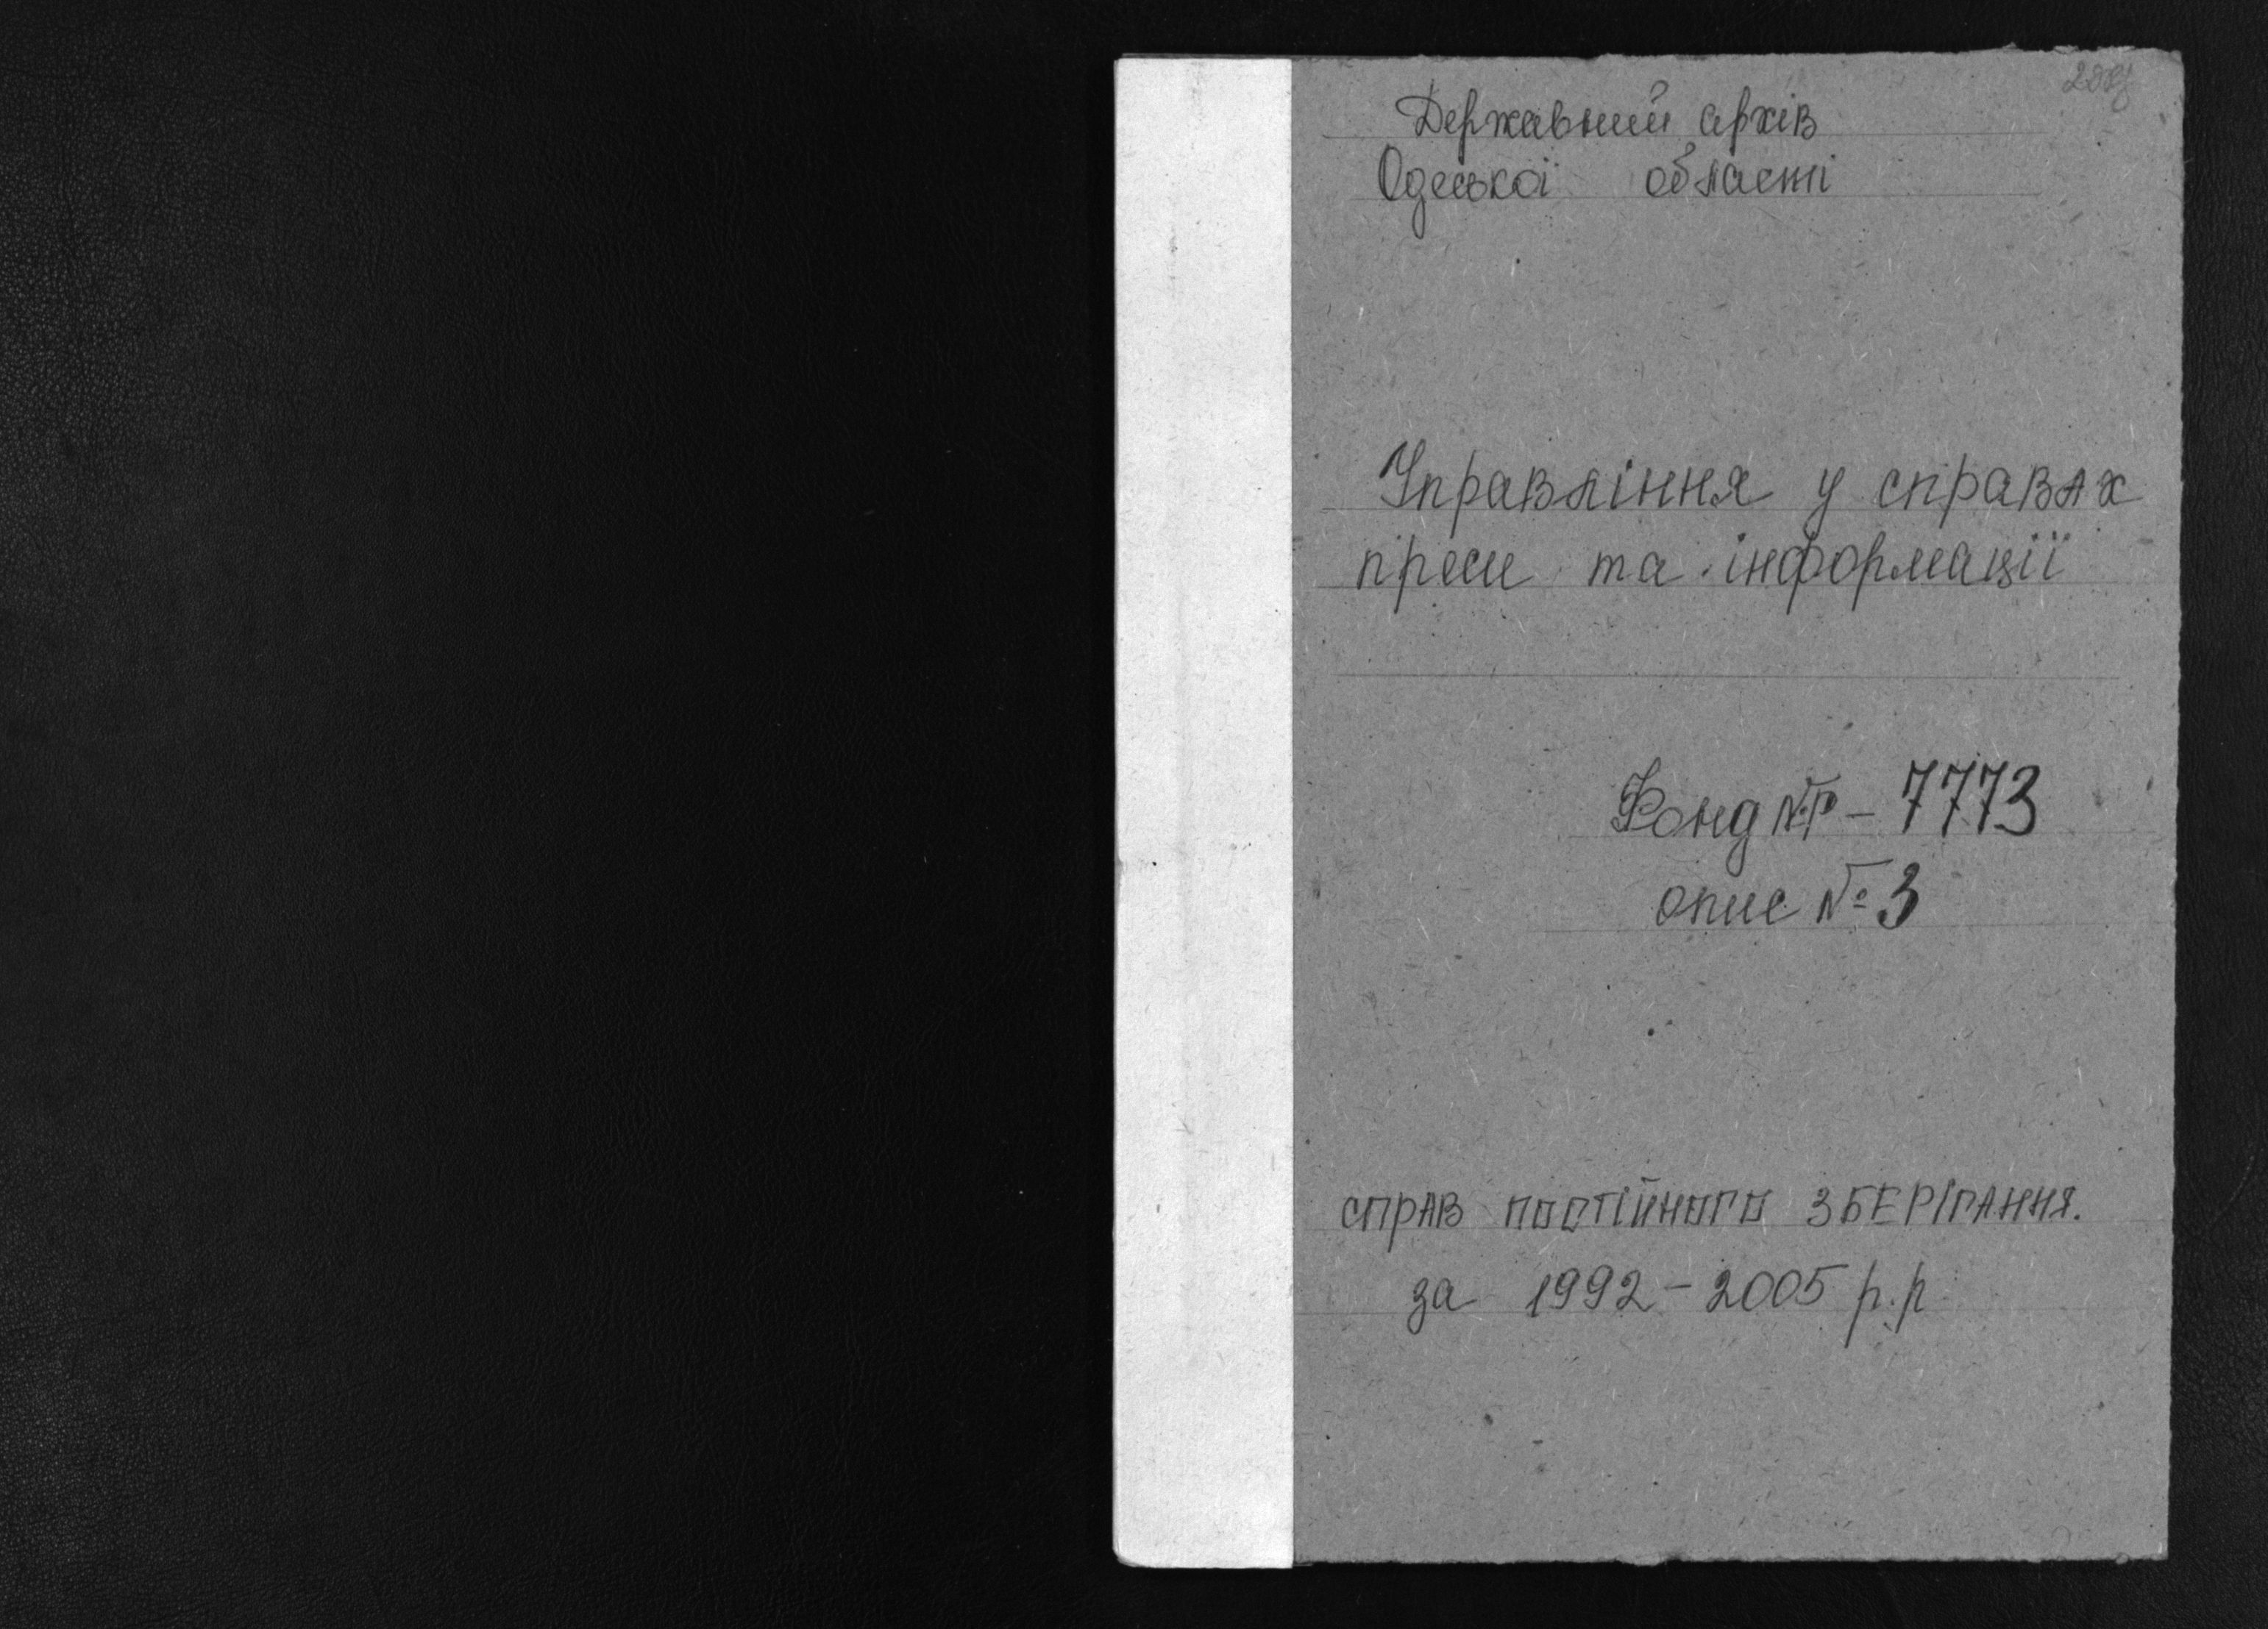 Державний архів
Одеської області
Управління у справах
преси та інформації
Фонд №Р - 7773
опис № 3
СПРАВ ПОСТІЙНОГО ЗБЕРІГАННЯ.
за 1992 - 2005 р.р